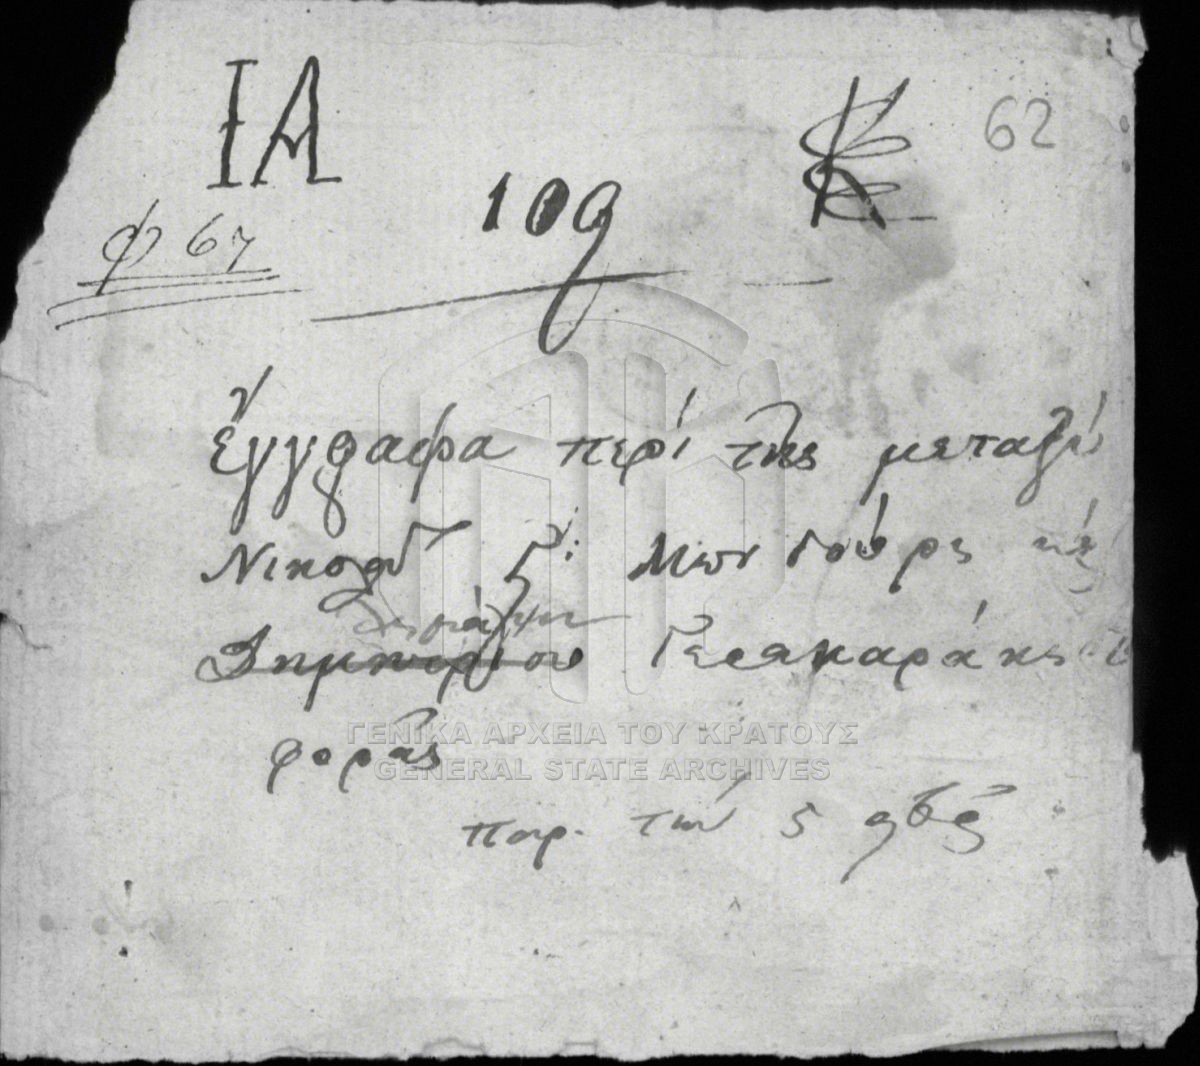 ΙΑ Κ 62
109
φ 67
Ἔγγραφα περί της μεταξύ
Νικολ Γ: Μπουντούρη καί
Δημητρίου Γερακαράκη
φορᾶς
παρ. των 5
ΓΕΝΙΚΑ ΑΡΧΕΙΑ ΤΟΥ ΚΡΑΤΟΥΣ
GENERAL STATE ARCHIVES